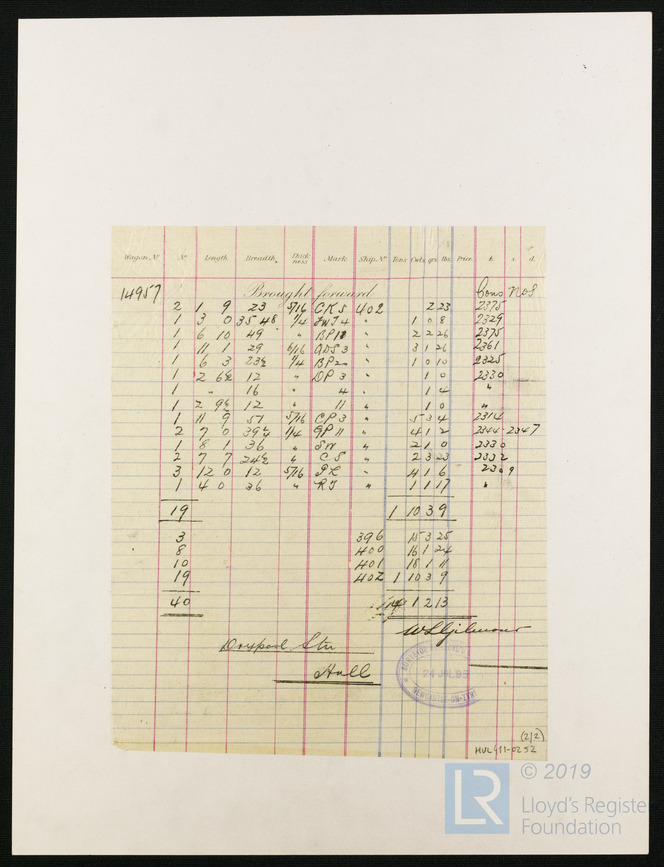 Wagon, No No Length Breadth, Thickness Mark Ship. No Tons Cwts qrs lbs. Price. £. s. d.
14957 Brought forward Cons Nos
2 1 9 23 5/16 CKS 402 2 23 2375
1 3 0 35 48 1/4 " 1 0 8 2329
1 6 10 49 " BP18 " 2 2 26 2375
1 11 1 29 6/16 ADS 3 " 3 1 26 2361
1 6 3 23½ 1/4 BP20 " 1 0 10 2325
1 2 6½ 12 " DP 3 " 1 0 2330
1 " 16 " 4 " 1 4 "
1 2 9½ 12 " 11 " 1 0 "
1 11 9 57 5/16 CP 3 " 5 3 4 2314
2 7 0 39½ 1/4 GP 11 " 4 1 2 2344 2347
1 8 1 36 " SW " 2 1 0 2330
2 7 7 24½ " CS " 2 3 23 2332
3 12 0 12 5/16 " 4 1 6 2309
1 4 0 36 " RJ " 1 1 17 "
19 1 10 3 9
3 396 15 3 25
8 400 16 1 24
10 401 18 1 11
19 402 1 10 3 9
40 1 2 13
WLGilmour
Drypool Stn
Hull
24 JUL 95
NEWCASTLE-ON-TYNE
(2/2)
HUL411-0252
LR
© 2019
Lloyd's Register
Foundation